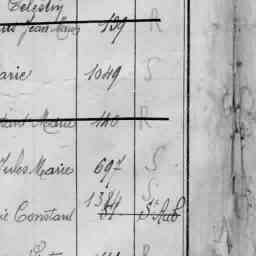 Célestin
Jean Marie 139 R
Marie 1049 S
Marie 140 R
Jules Marie 697 S
1384 S
ie Constant 81 St Aub